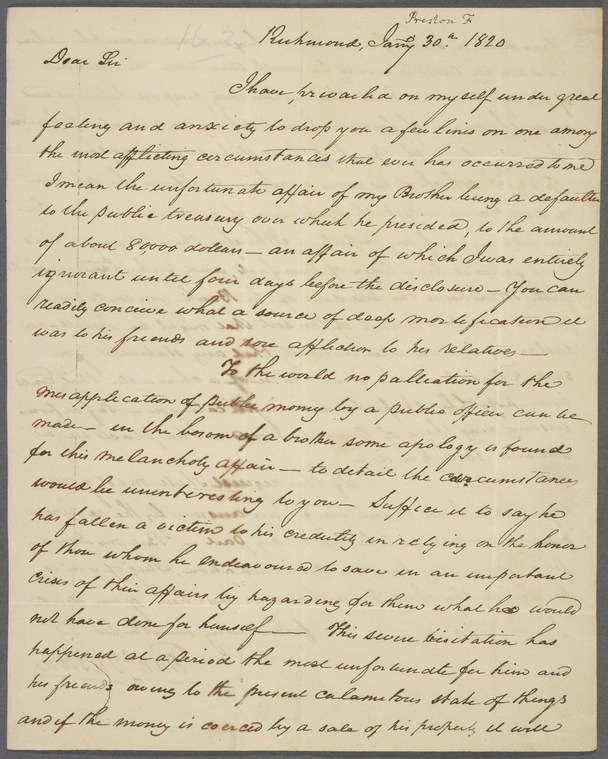 Preston F
Richmond, Jany 30th 1820
Dear Sir
I have prevailed on myself under great
feeling and anxiety to drop you a few lines on one among
the most afflicting circumstances that ever has occurred to me
I mean the unfortunate affair of my Brother being a defaulter
to the public treasury over which he presided, to the amount
of about 80,000 dollars — an affair of which I was entirely
ignorant until four days before the disclosure — You can
readily conceive what a source of deep mortification it
was to his friends and sore affliction to his relatives —
To the world no palliation for the
misapplication of public money by a public officer can be
made — in the bosom of a brother some apology is found
for this melancholy affair — to detail the circumstances
would be uninteresting to you — Suffice it to say he
has fallen a victim to his credulity in relying on the honor
of those whom he endeavoured to save in an important
crisis of their affairs by hazarding for them what he would
not have done for himself — This severe visitation has
happened at a period the most unfortunate for him and
his friends owing to the present calamitous state of things
and if the money is coerced by a sale of his property it will